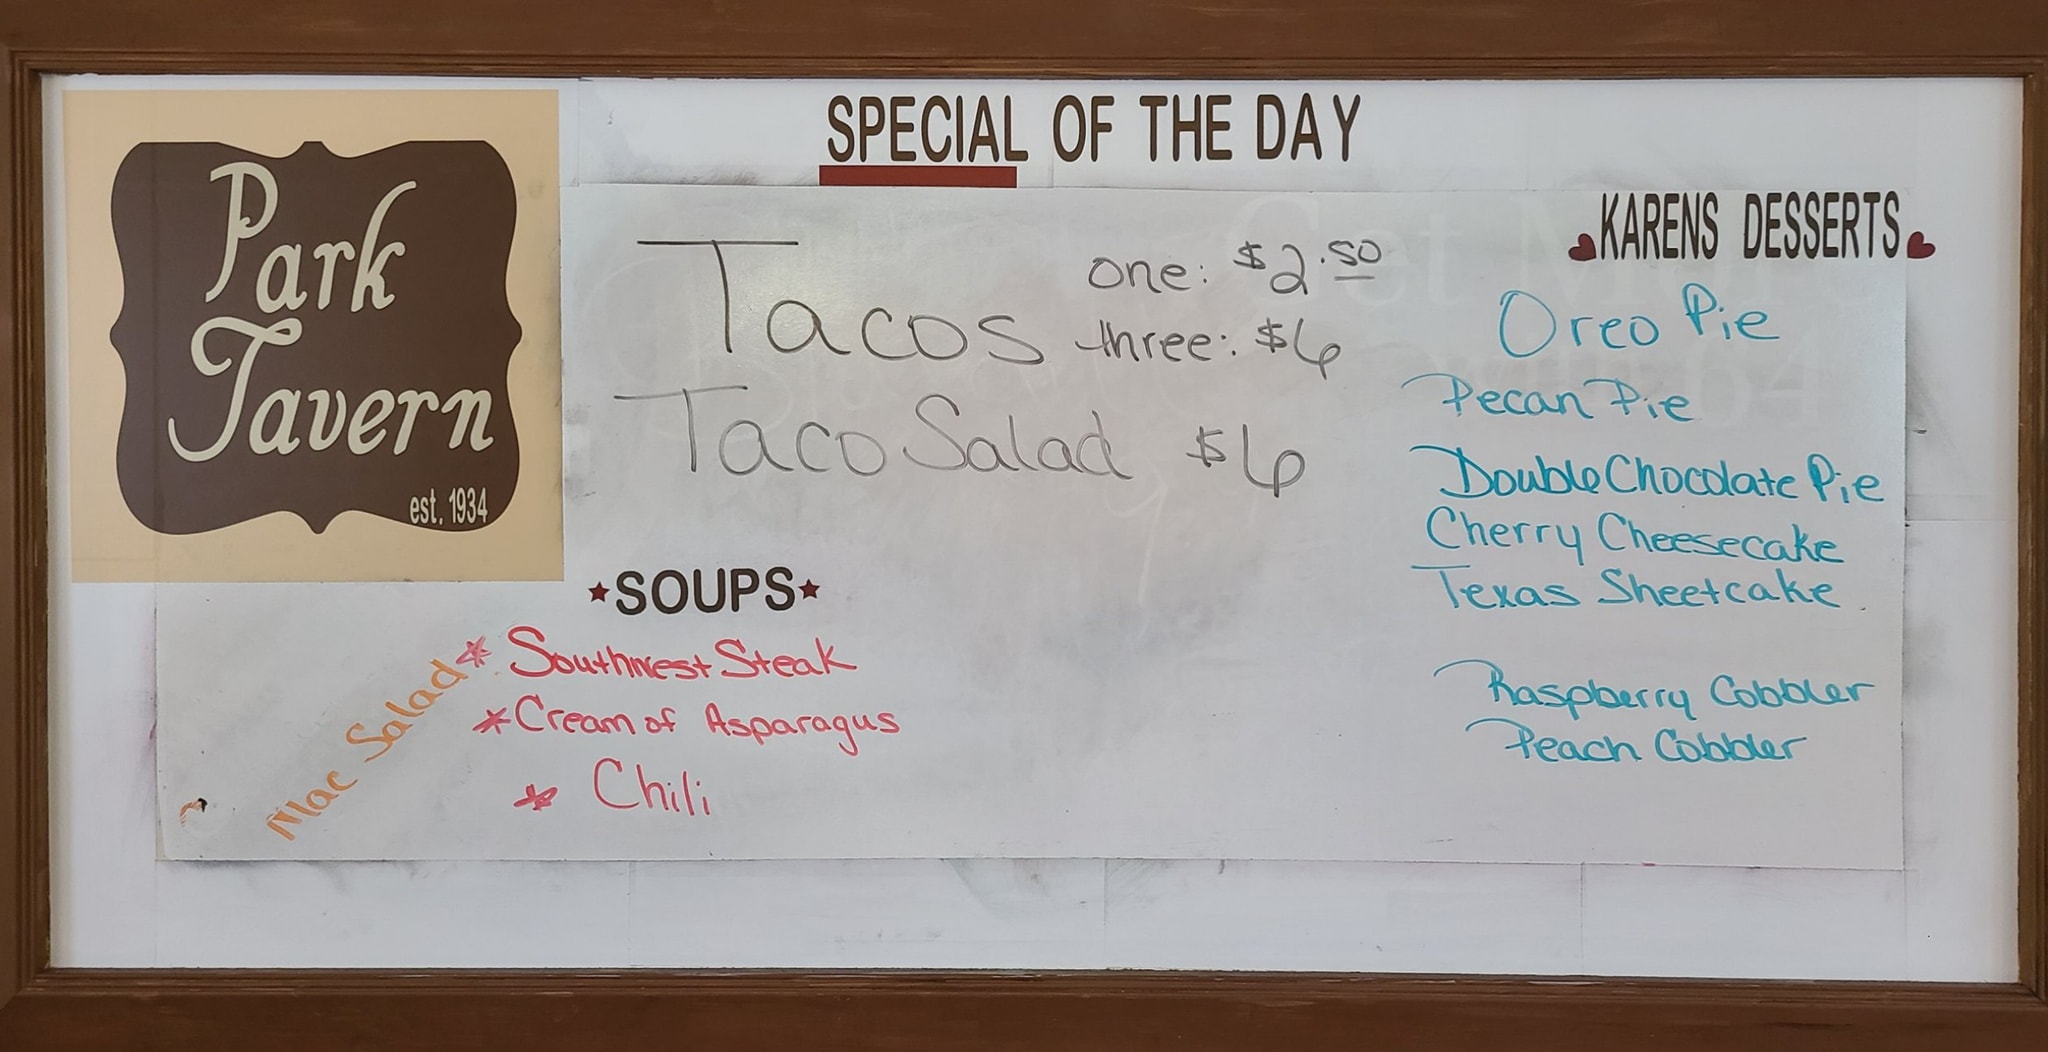 Park
Tavern
est. 1934
SPECIAL OF THE DAY
Tacos one: $2.50
three: $6
Taco Salad $6
SOUPS
* Southwest Steak
* Cream of Asparagus
* Chili
Mac Salad
KARENS DESSERTS
Oreo Pie
Pecan Pie
Double Chocolate Pie
Cherry Cheesecake
Texas Sheetcake
Raspberry Cobbler
Peach Cobbler